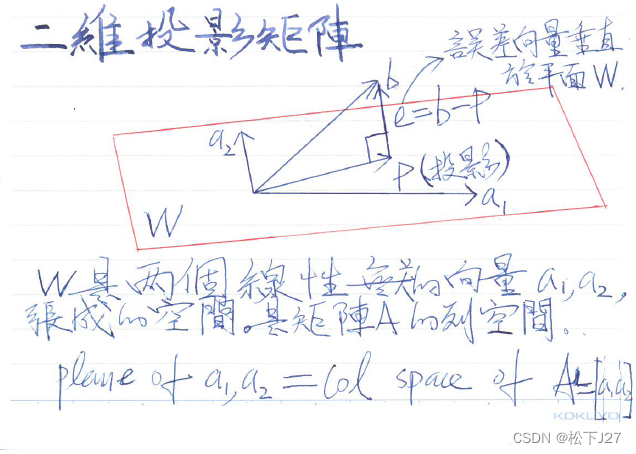 二維投影矩陣
誤差向量垂直
於平面W.
b
e=b-P
a2
P(投影)
a1
W
W是两個線性無關的向量a1,a2,
張成的空間。是矩陣A的列空間.
plane of a1,a2=Col space of A=[a1 a2]
KOKUYO
CSDN @松下J27